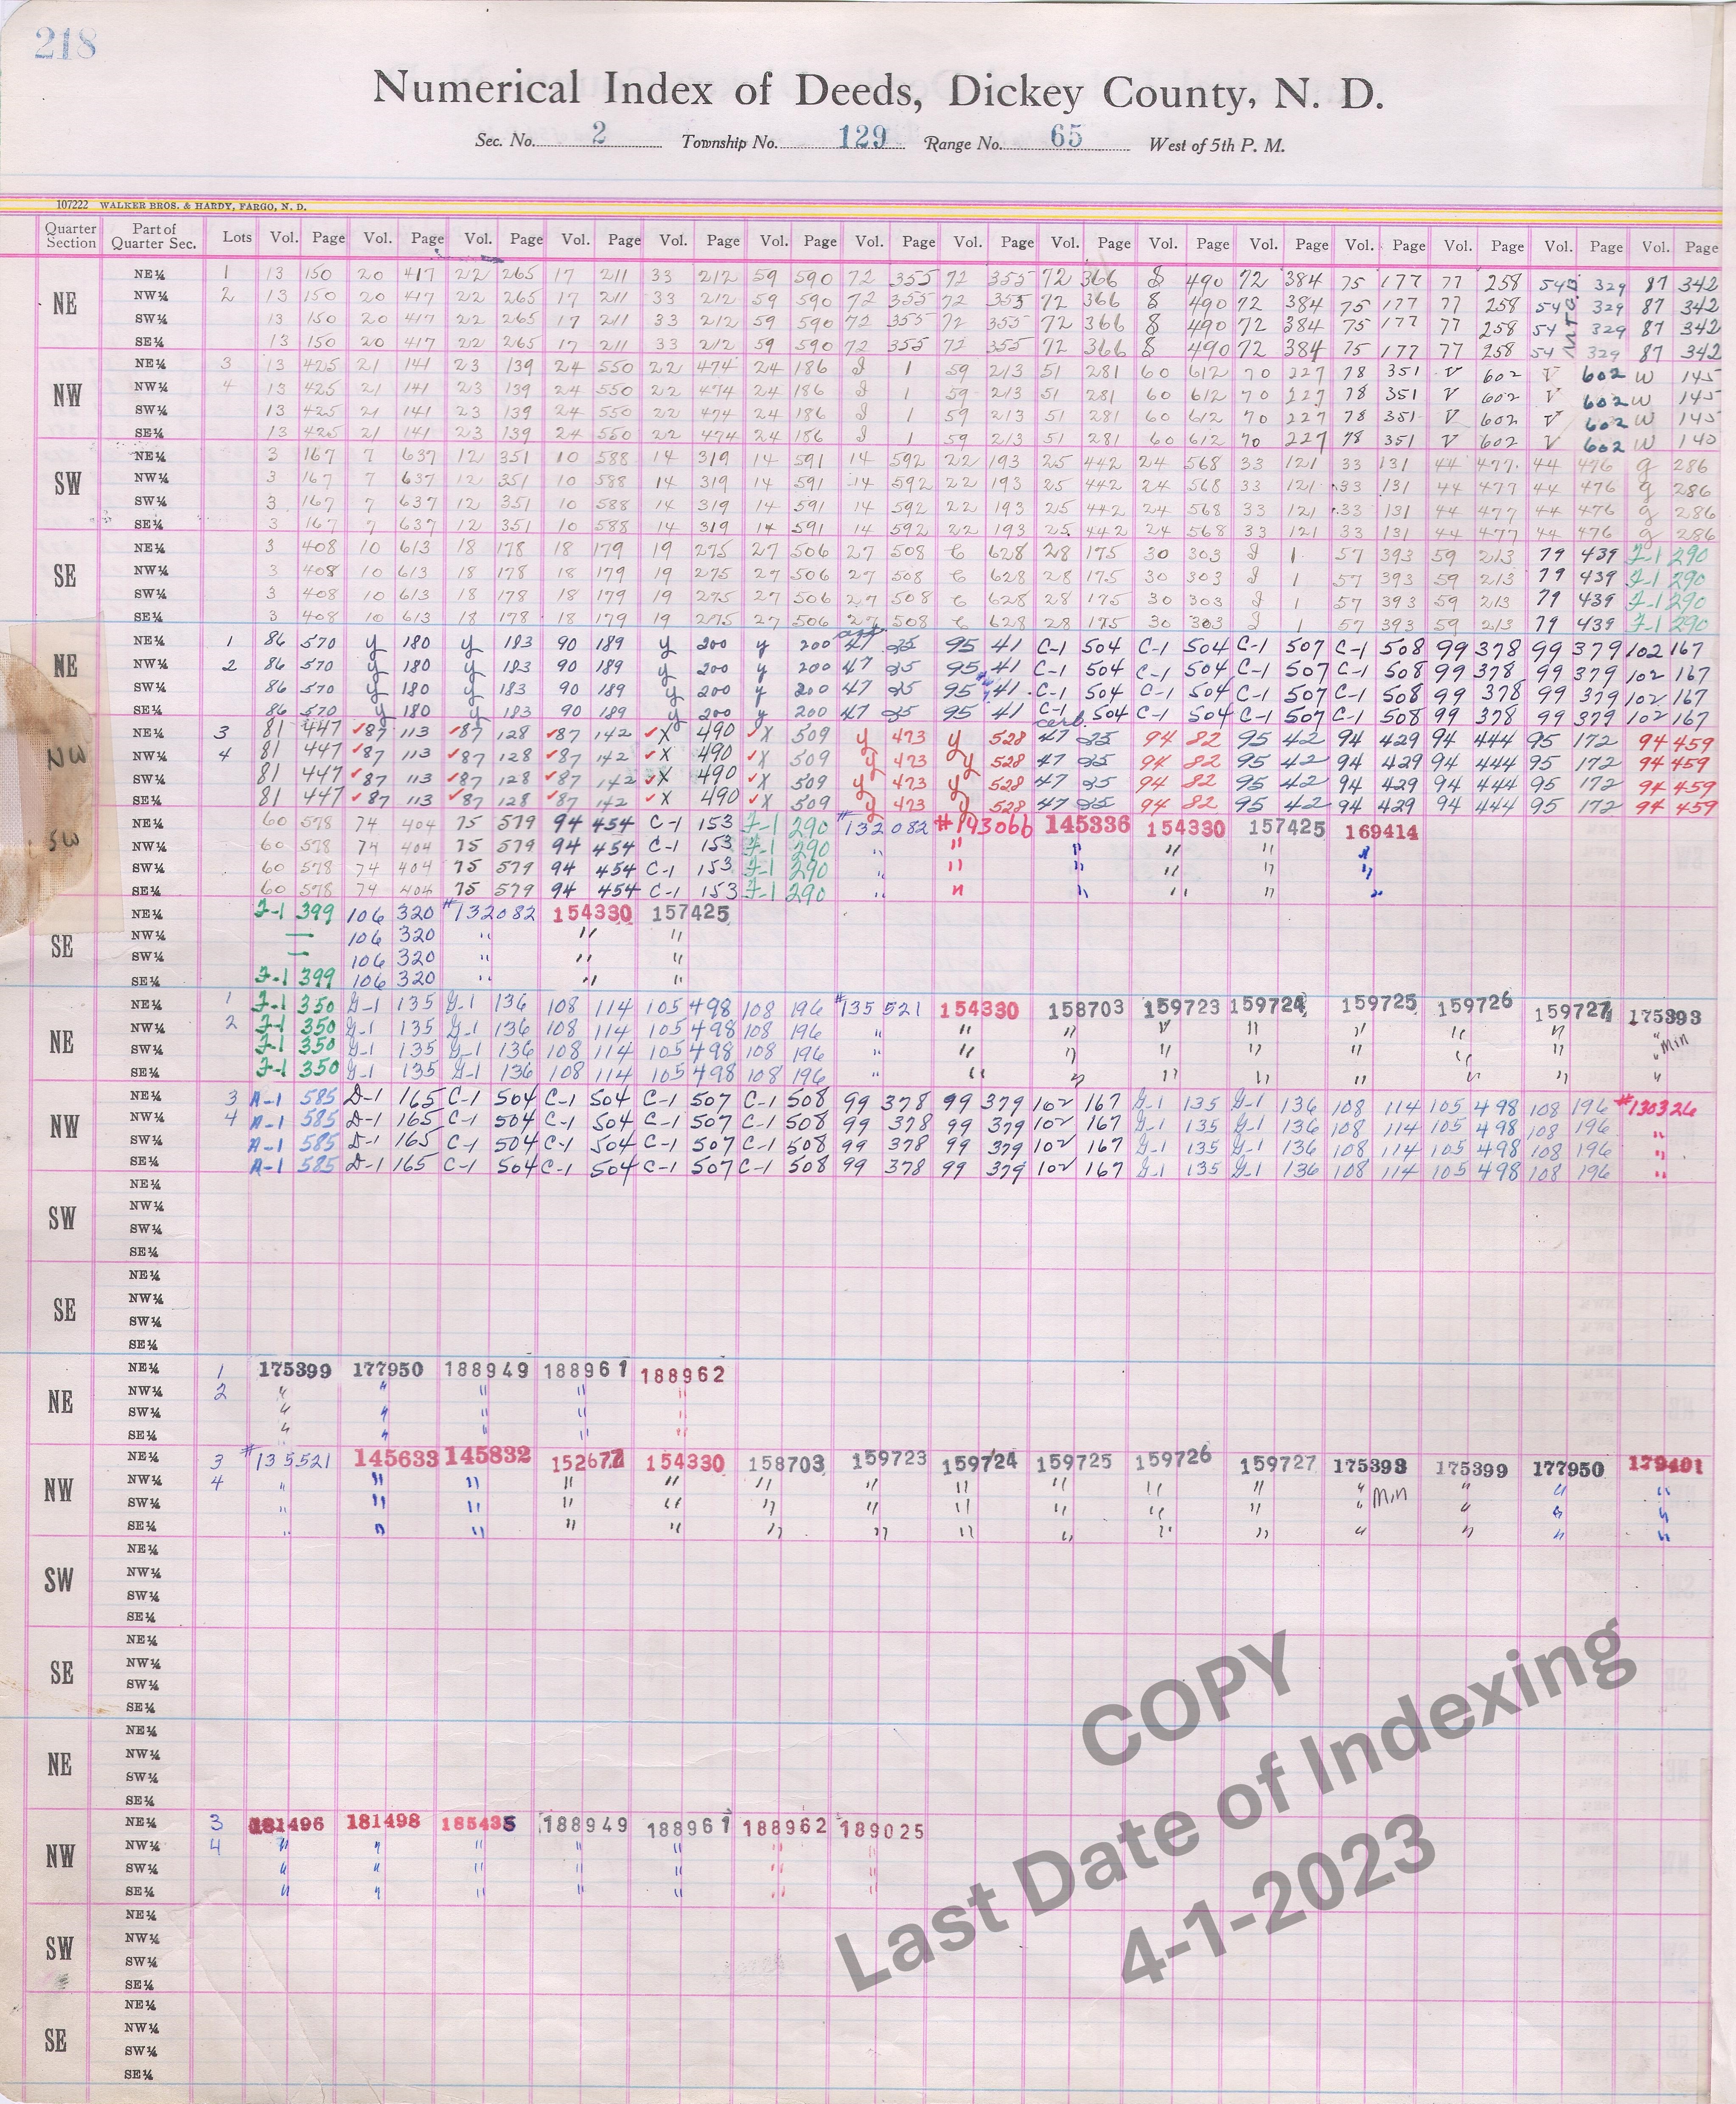 218
Numerical Index of Deeds, Dickey County, N. D.
Sec. No. 2 Township No. 129 Range No. 65 West of 5th P. M.
107222 WALKER BROS. & HARDY, FARGO, N. D.
Quarter Section Part of Quarter Sec. Lots Vol. Page Vol. Page Vol. Page Vol. Page Vol. Page Vol. Page Vol. Page Vol. Page Vol. Page Vol. Page Vol. Page Vol. Page Vol. Page Vol. Page Vol. Page
NE
NE¼ 1 13 150 20 417 22 265 17 211 33 212 59 590 72 355 72 355 72 366 8 490 72 384 75 177 77 258 54 329 87 342
NW¼ 2 13 150 20 417 22 265 17 211 33 212 59 590 72 355 72 355 72 366 8 490 72 384 75 177 77 258 54 329 87 342
SW¼ 13 150 20 417 22 265 17 211 33 212 59 590 72 355 72 355 72 366 8 490 72 384 75 177 77 258 54 329 87 342
SE¼ 13 150 20 417 22 265 17 211 33 212 59 590 72 355 72 355 72 366 8 490 72 384 75 177 77 258 54 329 87 342
NW
NE¼ 3 13 425 21 141 23 139 24 550 22 474 24 186 J 1 59 213 51 281 60 612 70 227 78 351 V 602 V 602 W 145
NW¼ 4 13 425 21 141 23 139 24 550 22 474 24 186 J 1 59 213 51 281 60 612 70 227 78 351 V 602 V 602 W 145
SW¼ 13 425 21 141 23 139 24 550 22 474 24 186 J 1 59 213 51 281 60 612 70 227 78 351 V 602 V 602 W 145
SE¼ 13 425 21 141 23 139 24 550 22 474 24 186 J 1 59 213 51 281 60 612 70 227 78 351 V 602 V 602 W 140
SW
NE¼ 3 167 7 637 12 351 10 588 14 319 14 591 14 592 22 193 25 442 24 568 33 121 33 131 44 477 44 476 g 286
NW¼ 3 167 7 637 12 351 10 588 14 319 14 591 14 592 22 193 25 442 24 568 33 121 33 131 44 477 44 476 g 286
SW¼ 3 167 7 637 12 351 10 588 14 319 14 591 14 592 22 193 25 442 24 568 33 121 33 131 44 477 44 476 g 286
SE¼ 3 167 7 637 12 351 10 588 14 319 14 591 14 592 22 193 25 442 24 568 33 121 33 131 44 477 44 476 g 286
SE
NE¼ 3 408 10 613 18 178 18 179 19 275 27 506 27 508 C 628 28 175 30 303 J 1 57 393 59 213 79 439 F-1 290
NW¼ 3 408 10 613 18 178 18 179 19 275 27 506 27 508 C 628 28 175 30 303 J 1 57 393 59 213 79 439 F-1 290
SW¼ 3 408 10 613 18 178 18 179 19 275 27 506 27 508 C 628 28 175 30 303 J 1 57 393 59 213 79 439 F-1 290
SE¼ 3 408 10 613 18 178 18 179 19 275 27 506 27 508 C 628 28 175 30 303 J 1 57 393 59 213 79 439 F-1 290
NE
NE¼ 1 86 570 y 180 y 183 90 189 y 200 y 200 47 25 95 41 C-1 504 C-1 504 C-1 507 C-1 508 99 378 99 379 102 167
NW¼ 2 86 570 y 180 y 183 90 189 y 200 y 200 47 25 95 41 C-1 504 C-1 504 C-1 507 C-1 508 99 378 99 379 102 167
SW¼ 86 570 y 180 y 183 90 189 y 200 y 200 47 25 95 41 C-1 504 C-1 504 C-1 507 C-1 508 99 378 99 379 102 167
SE¼ 86 570 y 180 y 183 90 189 y 200 y 200 47 25 95 41 C-1 504 C-1 504 C-1 507 C-1 508 99 378 99 379 102 167
NW
NE¼ 3 81 447 ✓87 113 ✓87 128 ✓87 142 ✓X 490 ✓X 509 y 473 y 528 47 25 94 82 95 42 94 429 94 444 95 172 94 459
NW¼ 4 81 447 ✓87 113 ✓87 128 ✓87 142 ✓X 490 ✓X 509 y 473 y 528 47 25 94 82 95 42 94 429 94 444 95 172 94 459
SW¼ 81 447 ✓87 113 ✓87 128 ✓87 142 ✓X 490 ✓X 509 y 473 y 528 47 25 94 82 95 42 94 429 94 444 95 172 94 459
SE¼ 81 447 ✓87 113 ✓87 128 ✓87 142 ✓X 490 ✓X 509 y 473 y 528 47 25 94 82 95 42 94 429 94 444 95 172 94 459
SW
NE¼ 60 578 74 404 75 579 94 454 C-1 153 F-1 290 #132082 #143066 145336 154330 157425 169414
NW¼ 60 578 74 404 75 579 94 454 C-1 153 F-1 290 " " " " " "
SW¼ 60 578 74 404 75 579 94 454 C-1 153 F-1 290 " " " " "
SE¼ 60 578 74 404 75 579 94 454 C-1 153 F-1 290 " " " " " "
SE
NE¼ F-1 399 106 320 #132082 154330 157425
NW¼ — 106 320 " " "
SW¼ — 106 320 " " "
SE¼ F-1 399 106 320 " " "
NE
NE¼ 1 F-1 350 G-1 135 G-1 136 108 114 105 498 108 196 #135521 154330 158703 159723 159724 159725 159726 159727 175393
NW¼ 2 F-1 350 G-1 135 G-1 136 108 114 105 498 108 196 " " " " " " " " "
SW¼ F-1 350 G-1 135 G-1 136 108 114 105 498 108 196 " " " " " " " " " Min
SE¼ F-1 350 G-1 135 G-1 136 108 114 105 498 108 196 " " " " " " " " "
NW
NE¼ 3 A-1 585 D-1 165 C-1 504 C-1 504 C-1 507 C-1 508 99 378 99 379 102 167 G-1 135 G-1 136 108 114 105 498 108 196 #130326
NW¼ 4 A-1 585 D-1 165 C-1 504 C-1 504 C-1 507 C-1 508 99 378 99 379 102 167 G-1 135 G-1 136 108 114 105 498 108 196 "
SW¼ A-1 585 D-1 165 C-1 504 C-1 504 C-1 507 C-1 508 99 378 99 379 102 167 G-1 135 G-1 136 108 114 105 498 108 196 "
SE¼ A-1 585 D-1 165 C-1 504 C-1 504 C-1 507 C-1 508 99 378 99 379 102 167 G-1 135 G-1 136 108 114 105 498 108 196 "
SW
NE¼
NW¼
SW¼
SE¼
SE
NE¼
NW¼
SW¼
SE¼
NE
NE¼ 1 175399 177950 188949 188961 188962
NW¼ 2 " " " " "
SW¼ " " " " "
SE¼ " " " " "
NW
NE¼ 3 #135521 145633 145832 152677 154330 158703 159723 159724 159725 159726 159727 175393 175399 177950 179401
NW¼ 4 " " " " " " " " " " " " " " "
SW¼ " " " " " " " " " " " " Min " " "
SE¼ " " " " " " " " " " " " " " "
SW
NE¼
NW¼
SW¼
SE¼
SE
NE¼
NW¼
SW¼
SE¼
NE
NE¼
NW¼
SW¼
SE¼
NW
NE¼ 3 181496 181498 185435 188949 188961 188962 189025
NW¼ 4 " " " " " " "
SW¼ " " " " " " "
SE¼ " " " " " " "
SW
NE¼
NW¼
SW¼
SE¼
SE
NE¼
NW¼
SW¼
SE¼
COPY
Last Date of Indexing
4-1-2023